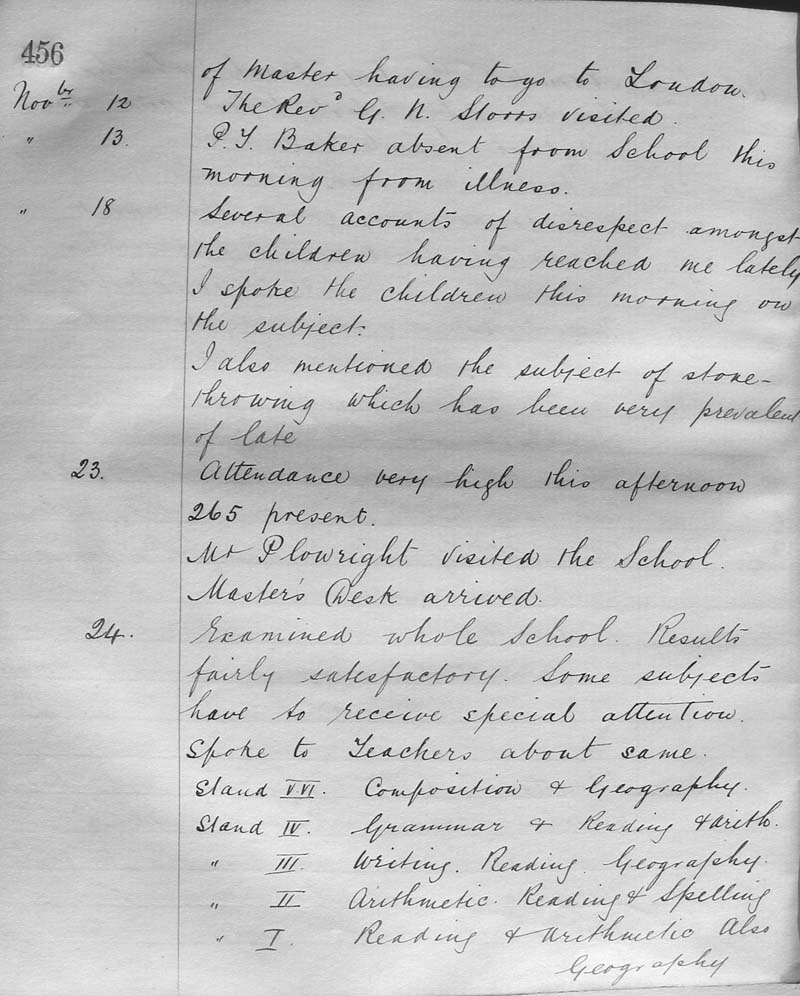 456
of Master having to go to London.
Novbr 12 The Revd G. N. Storrs visited.
" 13. P.T. Baker absent from School this
morning from illness.
" 18 Several accounts of disrespect amongst
the children having reached me lately
I spoke the children this morning on
the subject.
I also mentioned the subject of stone-
throwing which has been very prevalent
of late
23. Attendance very high this afternoon
265 present.
Mr Plowright visited the School.
Master's Desk arrived.
24. Examined whole School. Results
fairly satisfactory. Some subjects
have to receive special attention.
Spoke to Teachers about same.
Stand V.VI. Composition & Geography.
Stand IV. Grammar & Reading & Arith.
" III. Writing. Reading. Geography.
" II Arithmetic. Reading & Spelling
" I. Reading & Arithmetic Also
Geography